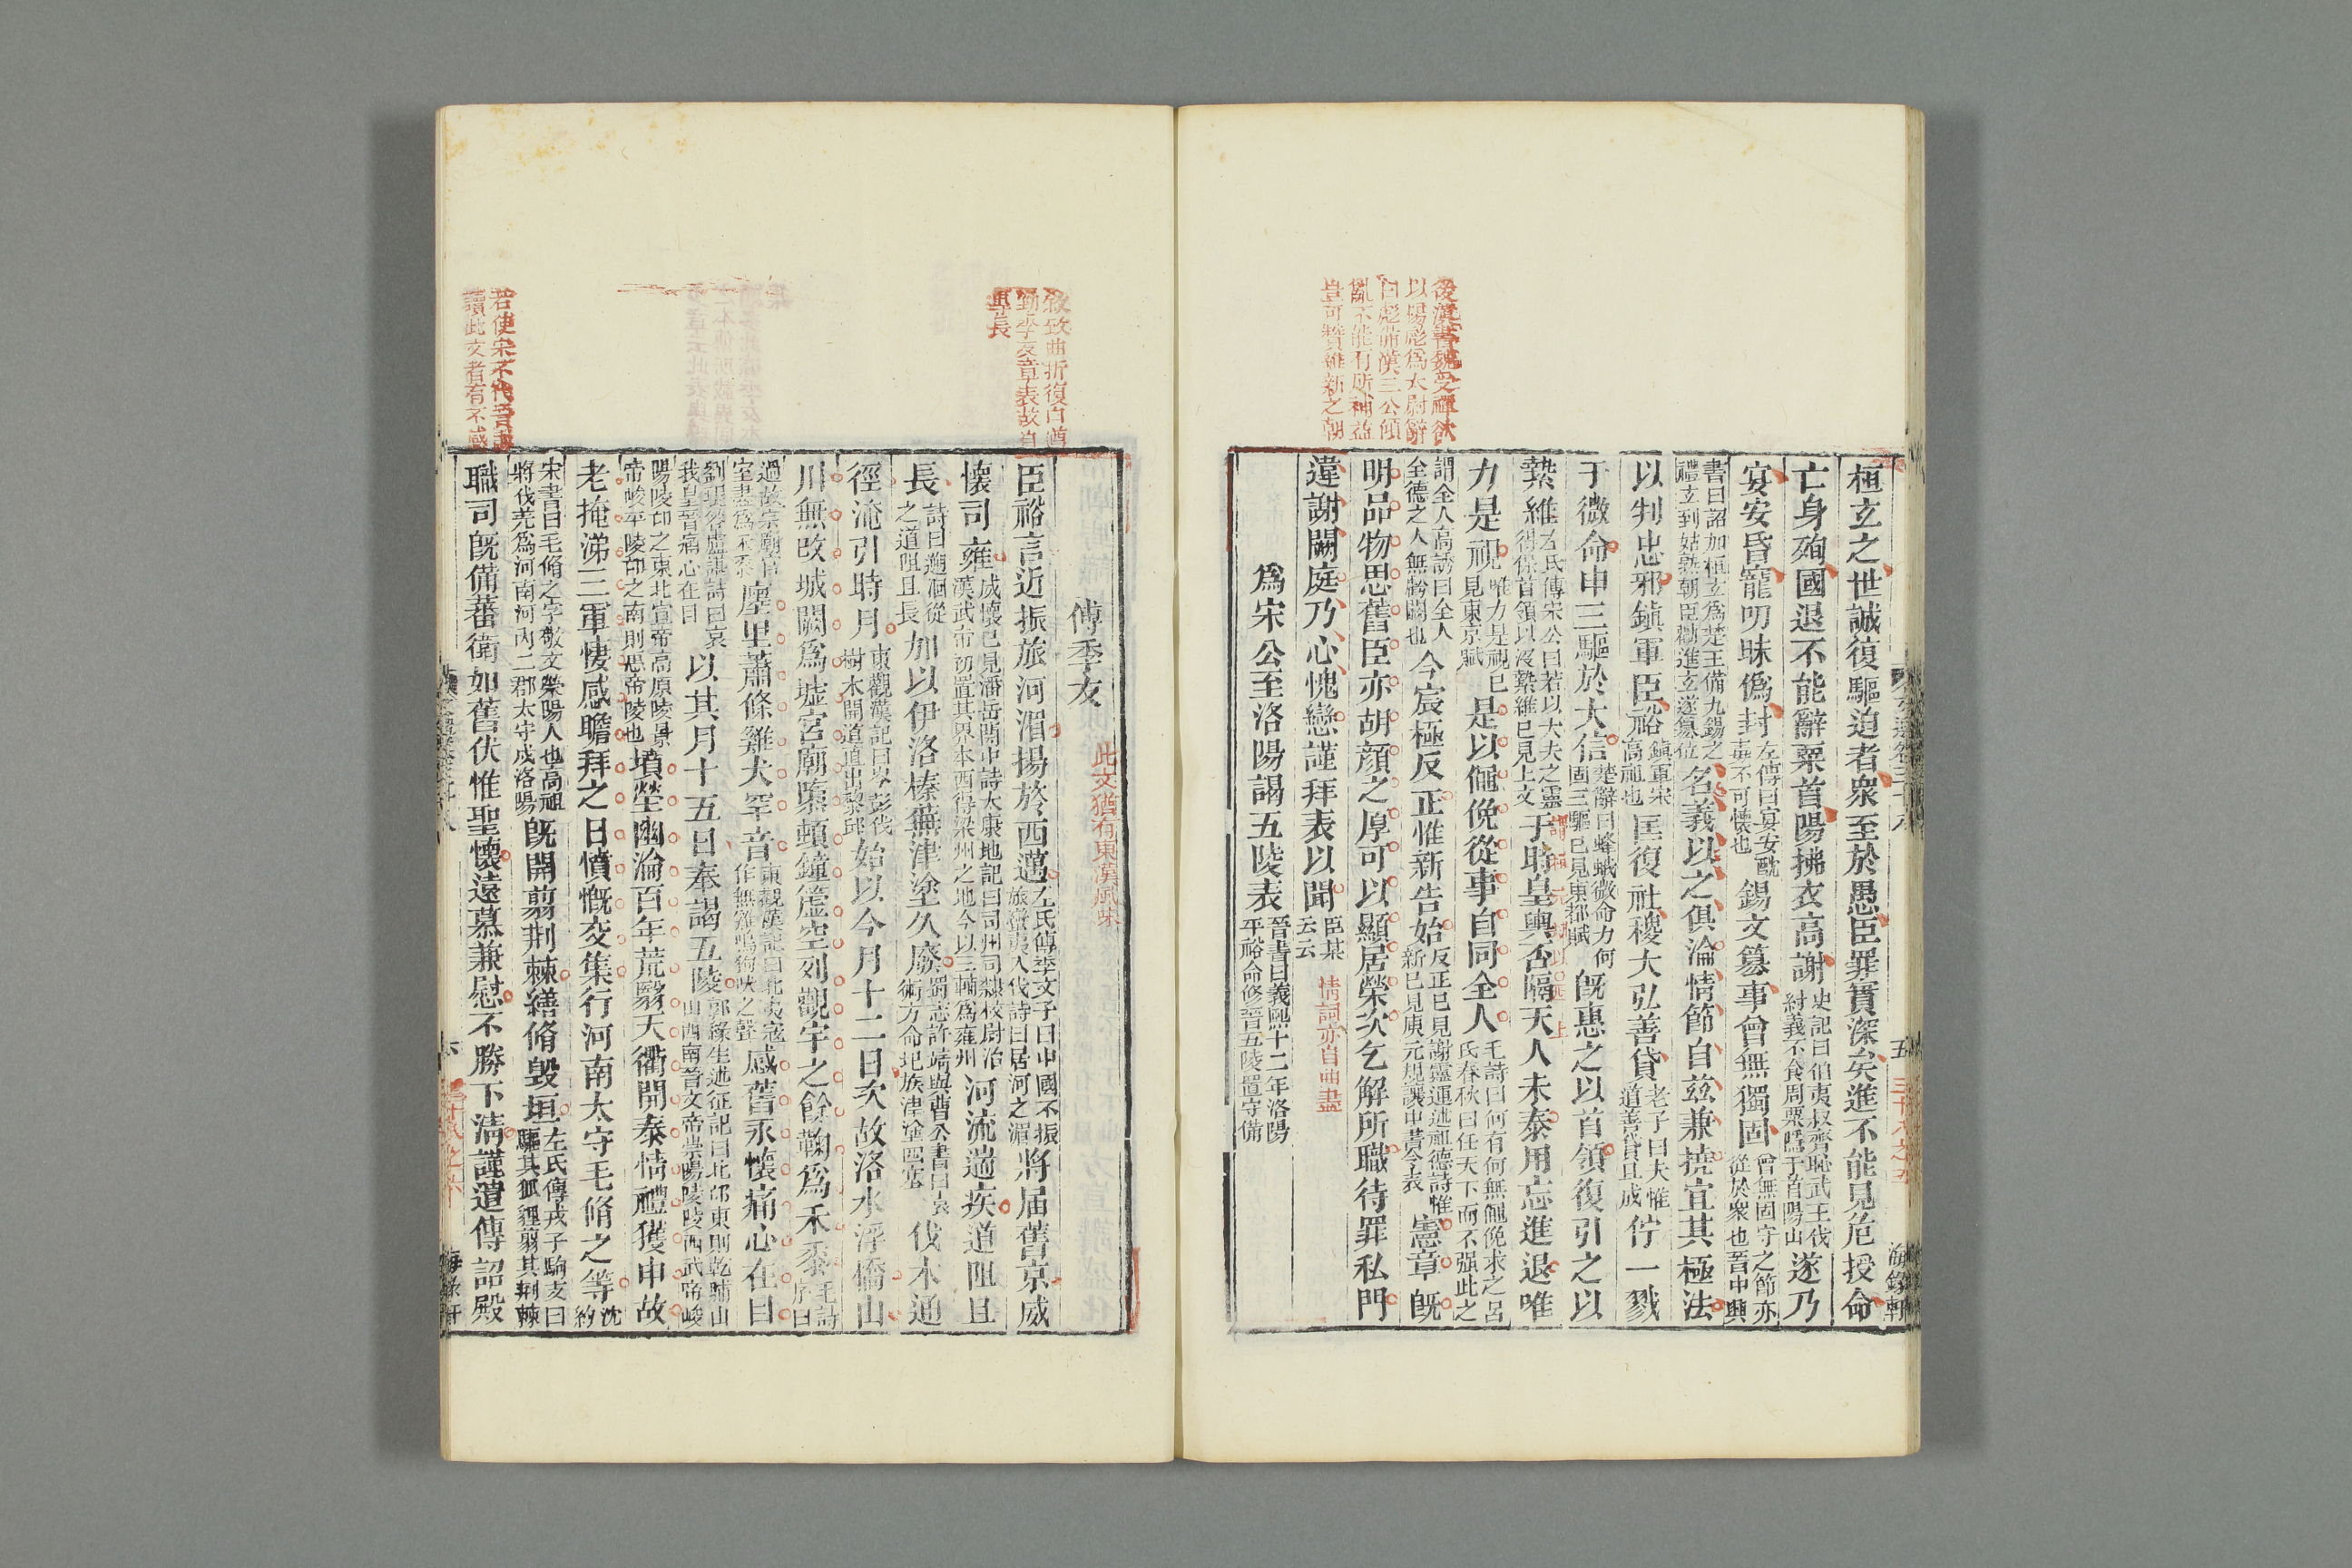 後漢書魏受禪欲
以楊彪爲太尉辭
曰彪備漢三公傾
亂不能有所補益
豈可贊維新之朝
海錄軒
桓玄之世誠復驅迫者衆至於愚臣罪實深矣進不能見危授命
亡身殉國退不能辭粟首陽拂衣高謝史記曰伯夷叔齊恥武王伐
紂義不食周粟隱于首陽山遂乃
宴安昏寵叨昧僞封左傳曰宴安酖
毒不可懷也錫文篡事曾無獨固曾無固守之節亦
從於衆也晉中興
書曰詔加桓玄爲楚王備九錫之
禮玄到姑孰朝臣勸進玄遂篡位名義以之俱淪情節自兹兼撓宜其極法
以判忠邪鎮軍臣裕鎮軍宋
高祖也匡復社稷大弘善貸老子曰夫惟
道善貸且成佇一戮
于微命申三驅於大信楚辭曰蜂蛾微命力何
固三驅已見東都賦旣惠之以首領復引之以
縶維左氏傳宋公曰若以大夫之靈
得保首領以没縶維已見上文于時皇輿否隔天人未泰用忘進退唯
力是視唯力是視已
見東京賦是以僶俛從事自同全人毛詩曰何有何無僶俛求之呂
氏春秋曰任天下而不强此之
謂全人高誘曰全人
全德之人無虧闕也今宸極反正惟新告始反正已見謝靈運述祖德詩惟
新已見庾元規讓中書令表憲章旣
明品物思舊臣亦胡顔之厚可以顯居榮次乞解所職待罪私門
違謝闕庭乃心愧戀謹拜表以聞臣某
云云
情詞亦自曲盡
爲宋公至洛陽謁五陵表晉書曰義熙十二年洛陽
平裕命修晉五陵置守備
敍致曲折復自遒
勁季友章表故自
興長
若使宋不代晉誠
讀此文者有不感
傅季友
此文猶有東漢風味
臣裕言近振旅河湄揚於西邁左氏傳季文子曰中國不振
旅蠻夷入伐詩曰居河之湄將届舊京威
懷司雍成懷已見潘岳關中詩太康地記曰司州司隸校尉治
漢武帝初置其界本西得梁州之地今以三輔爲雍州河流遄疾道阻且
長詩曰遡洄從
之道阻且長加以伊洛榛蕪津塗久廢蜀志許靖與曹公書曰袁
術方命圮族津塗四塞伐木通
徑淹引時月東觀漢記曰岑彭伐
樹木開道直出黎邱始以今月十二日次故洛水浮橋山
川無改城闕爲墟宮廟隳頓鐘簴空列觀宇之餘鞠爲禾黍毛詩
序曰
過故宗廟宮
室盡爲禾黍廛里蕭條雞犬罕音東觀漢記曰北夷寇
作無雞鳴狗吠之聲感舊永懷痛心在目
劉琨答盧諶詩曰哀
我皇晉痛心在目以其月十五日奉謁五陵郭緣生述征記曰北邙東則乾脯山
山西南晉文帝崇陽陵陵西武帝峻
陽陵邙之東北宣帝高原陵景
帝峻平陵邙之南則惠帝陵也墳塋幽淪百年荒翳天衢開泰情禮獲申故
老掩涕三軍悽感瞻拜之日憤慨交集行河南太守毛脩之等沈
約
宋書曰毛脩之字敬文滎陽人也高祖
將伐羌爲河南河內二郡太守戍洛陽旣開翦荆棘繕脩毁垣左氏傳戎子駒支曰
驅其狐貍翦其荆棘
職司旣備蕃衛如舊伏惟聖懷遠慕兼慰不勝下淸謹遣傳詔殿